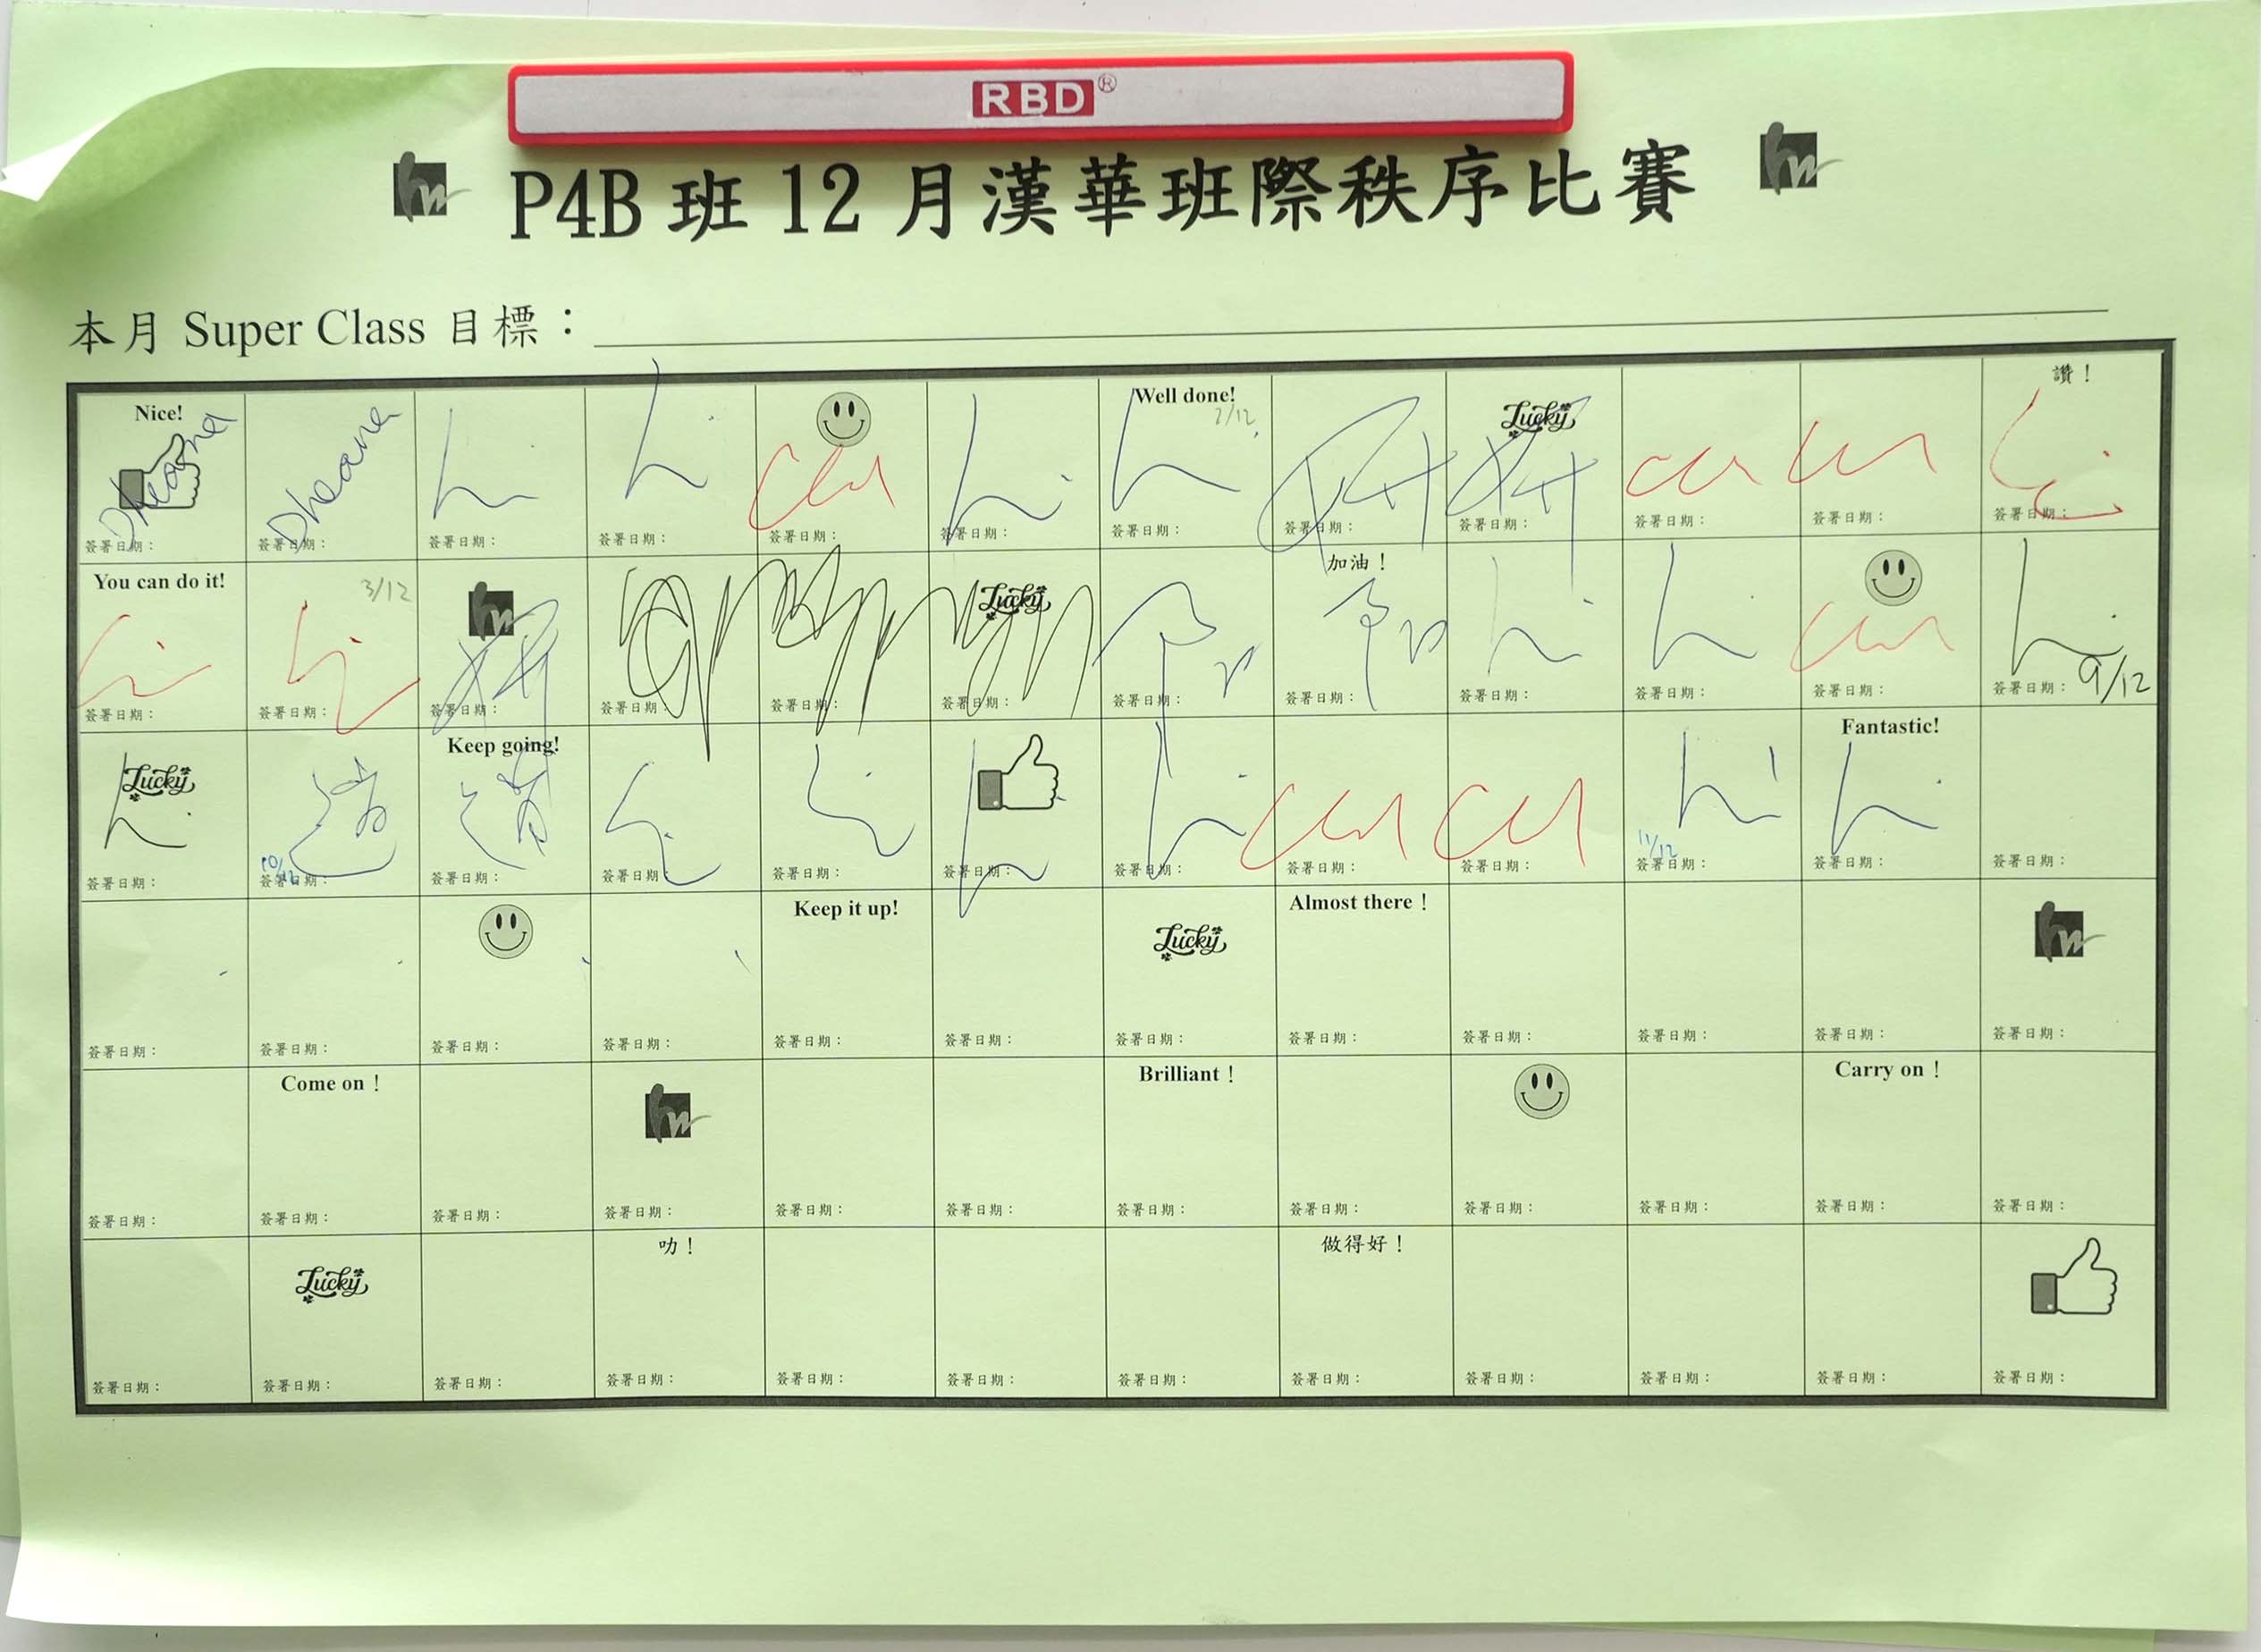 RBD®
P4B 班 12 月漢華班際秩序比賽
本月 Super Class 目標：
Nice! Well done! Lucky 讚！
Dheana Dheana 2/12
簽署日期： 簽署日期： 簽署日期： 簽署日期： 簽署日期： 簽署日期： 簽署日期： 簽署日期： 簽署日期： 簽署日期： 簽署日期： 簽署日期：
You can do it! 3/12 hw Lucky 加油！
簽署日期： 簽署日期： 簽署日期： 簽署日期： 簽署日期： 簽署日期： 簽署日期： 簽署日期： 簽署日期： 簽署日期： 簽署日期： 簽署日期： 9/12
Lucky Keep going! Fantastic!
10/12 11/12
簽署日期： 簽署日期： 簽署日期： 簽署日期： 簽署日期： 簽署日期： 簽署日期： 簽署日期： 簽署日期： 簽署日期： 簽署日期： 簽署日期：
Keep it up! Lucky Almost there！ hw
簽署日期： 簽署日期： 簽署日期： 簽署日期： 簽署日期： 簽署日期： 簽署日期： 簽署日期： 簽署日期： 簽署日期： 簽署日期： 簽署日期：
Come on！ hw Brilliant！ Carry on！
簽署日期： 簽署日期： 簽署日期： 簽署日期： 簽署日期： 簽署日期： 簽署日期： 簽署日期： 簽署日期： 簽署日期： 簽署日期： 簽署日期：
Lucky 叻！ 做得好！
簽署日期： 簽署日期： 簽署日期： 簽署日期： 簽署日期： 簽署日期： 簽署日期： 簽署日期： 簽署日期： 簽署日期： 簽署日期： 簽署日期：